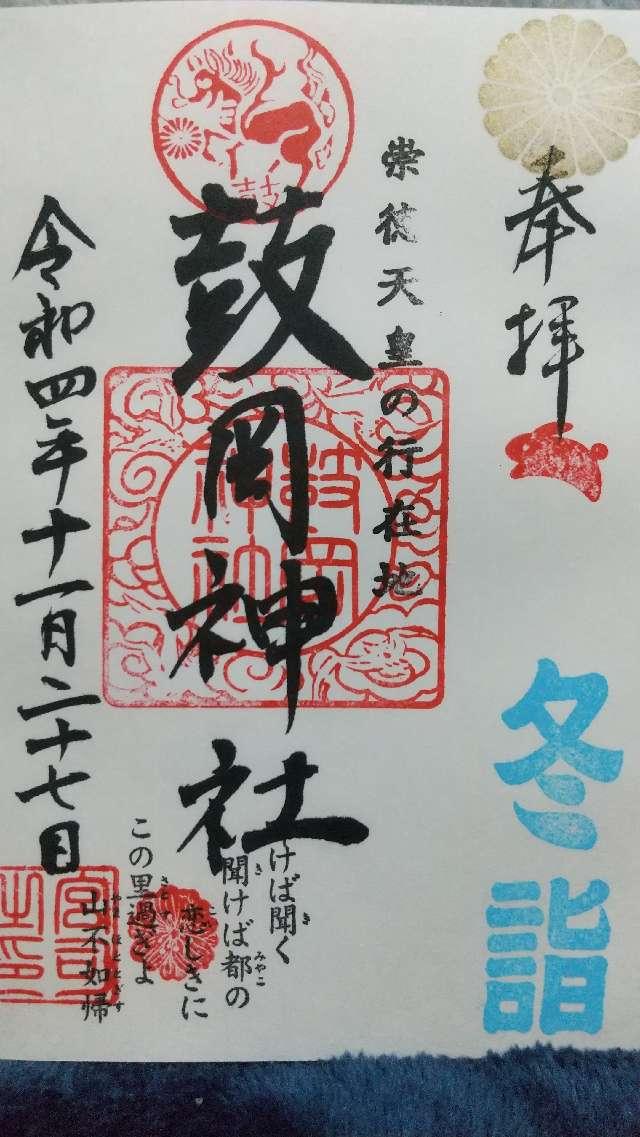 奉拝
冬詣
崇徳天皇の行在地
鼓
鼓岡神社
鼓岡神社
けば聞く
聞けば都の
恋しきに
この里過ぎよ
山不如帰
令和四年十一月二十七日
宮司之印